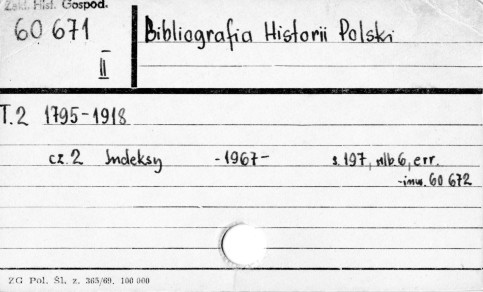 Zakł. Hist. Gospod.
60 671
II
Bibliografia Historii Polski
T.2 1795-1918
cz.2 Indeksy -1967- s.197, nlb.6, err.
-inw. 60 672
ZG Pol. Śl. z. 365/69. 100 000